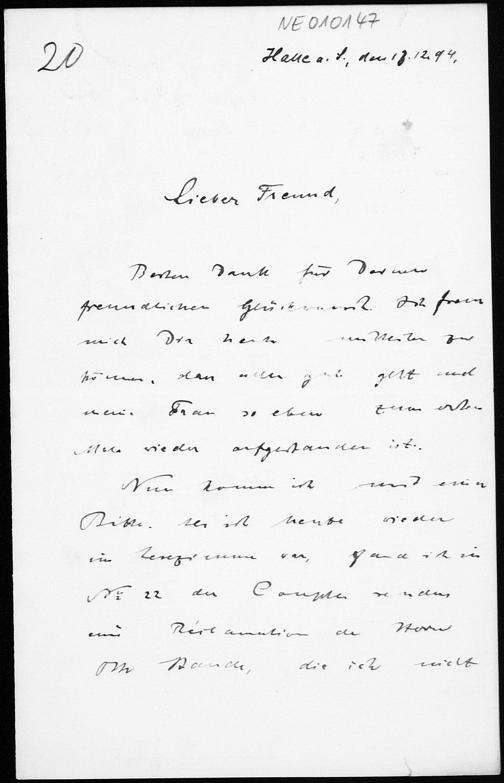 NE010147
20
Halle a. S., den 17.12.94,
Lieber Freund,
Besten Dank für Deinen
freundlichen Glückwunsch. Ich freue
mich Dir heute mittheilen zu
können, dass alles gut geht und
meine Frau so eben zum ersten
Male wieder aufgestanden ist.
Nun komme ich mit einer
Bitte. Als ich heute wieder
im Lesezimmer war, fand ich in
No 22 der Comptes rendus
eine Réclamation de
die ich nicht